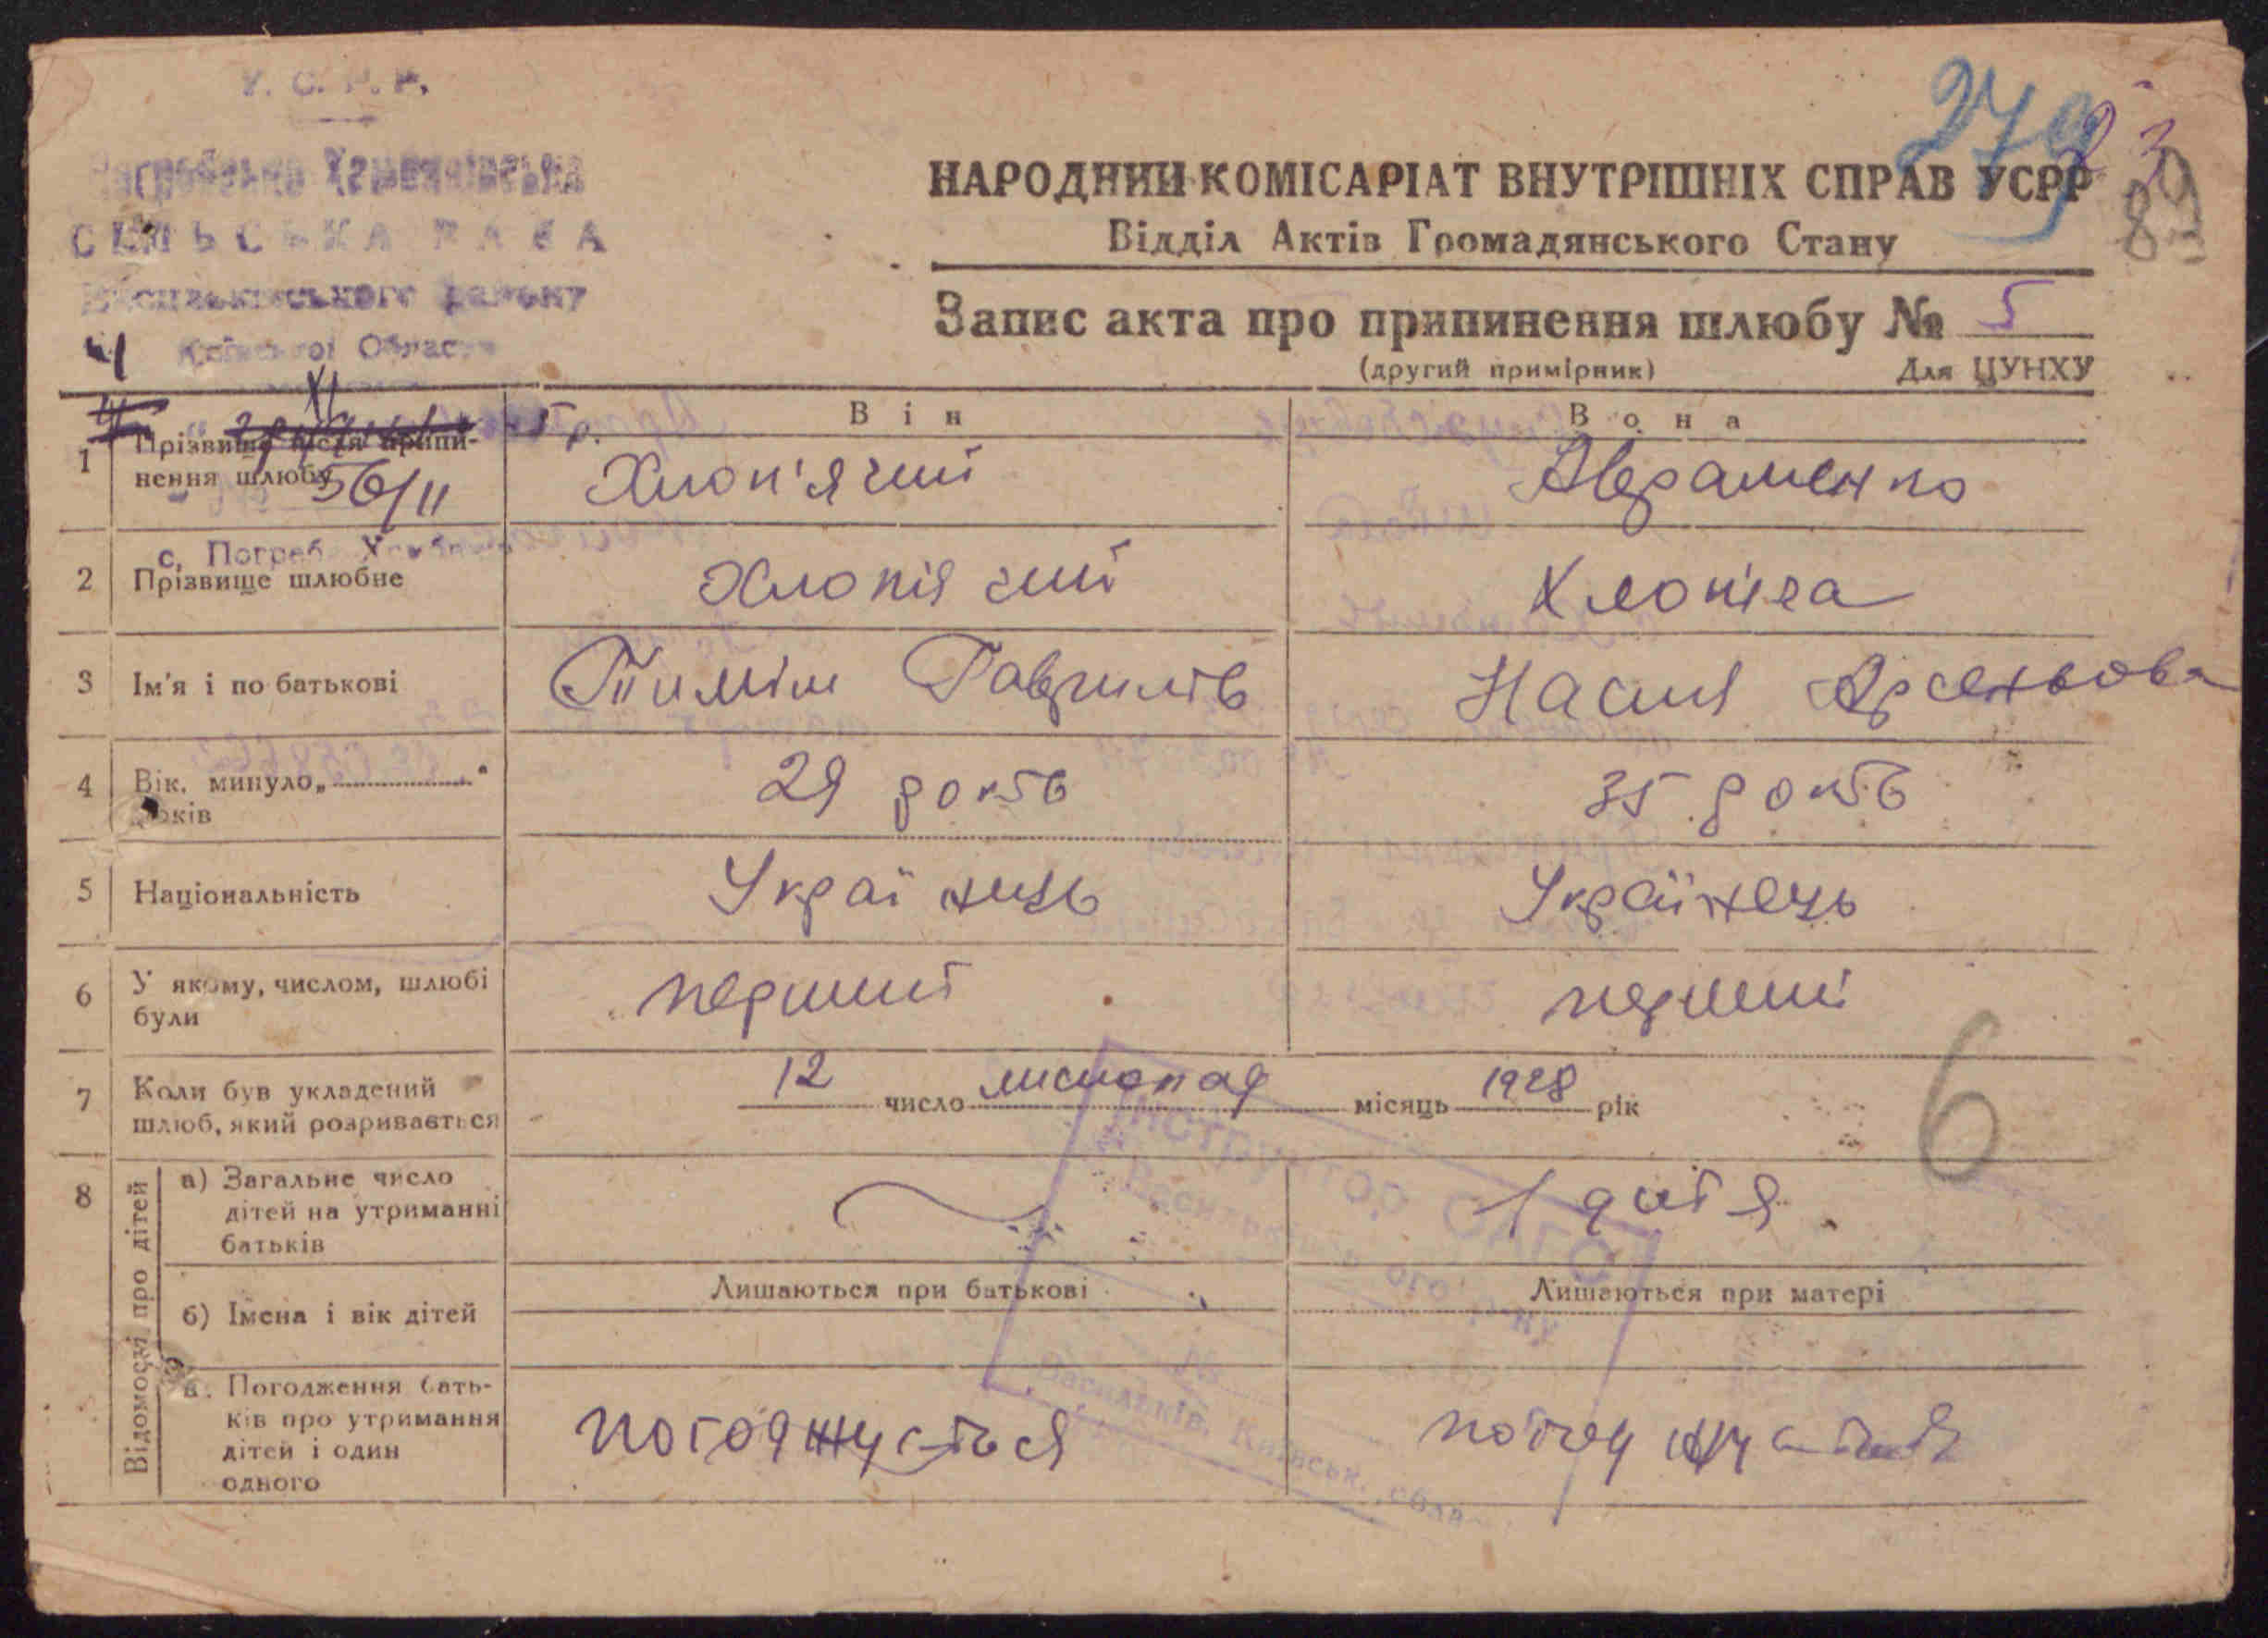 У. С. Р. Р.
СІЛЬСЬКА РАДА
Васильківського району
Київської Області
279
23
89
НАРОДНИЙ КОМІСАРІАТ ВНУТРІШНІХ СПРАВ УСРР
Відділ Актів Громадянського Стану
Запис акта про припинення шлюбу № 5
(другий примірник) Для ЦУНХУ
Він Вона
1 Прізвище після припи-
нення шлюбу Хлоп'ячий Авраменко
56/11
с. Погреб
2 Прізвище шлюбне Хлопія чий Хлопіча
3 Ім'я і по батькові Тиміш Гаврилів Настя Арсеньова
4 Вік. минуло „ “
років 29 років 35 років
5 Національність Українець Українець
6 У якому, числом, шлюбі
були перший перший
7 Коли був укладений
шлюб, який розривається 12 число листопад місяць 1928 рік
6
8 Відомості про дітей
а) Загальне число
дітей на утриманні
батьків 1 дитя
б) Імена і вік дітей Лишаються при батькові Лишаються при матері
в. Погодження бать-
ків про утримання
дітей і один
одного погоджуються
Інструктор ОАГС
Васильківського р-ну
№
Васильків, Київськ. обл.